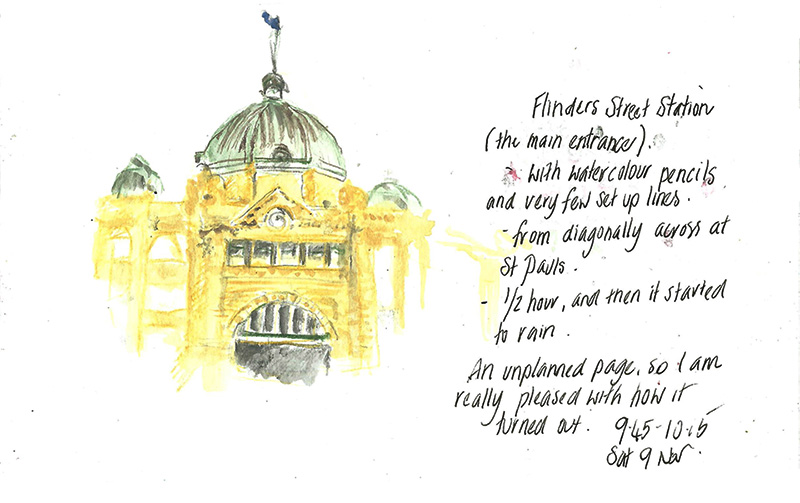 Flinders Street Station
(the main entrance).
- with watercolour pencils
and very few set up lines.
- from diagonally across at
St Pauls.
- 1/2 hour, and then it started
to rain.
An unplanned page, so I am
really pleased with how it
turned out. 9.45-10.15
Sat 9 Nov.